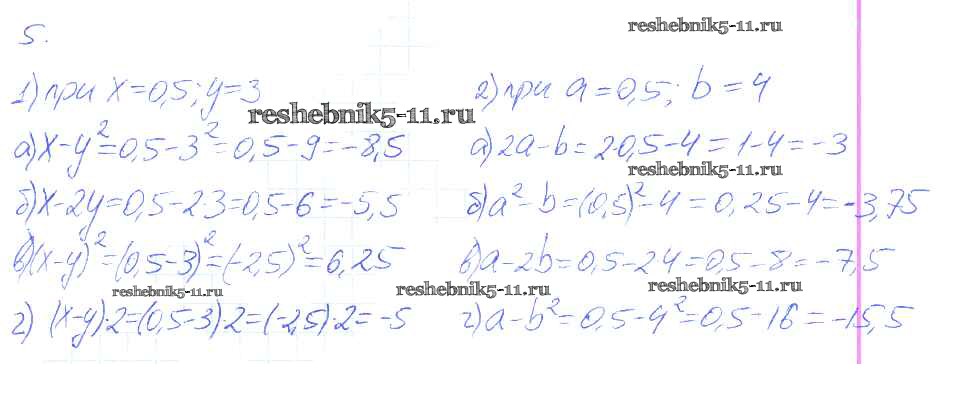 reshebnik5-11.ru
5.
1) при x=0,5; y=3
2) при a=0,5; b=4
reshebnik5-11.ru
а) x-y²=0,5-3²=0,5-9=-8,5
а) 2a-b=2·0,5-4=1-4=-3
reshebnik5-11.ru
б) x-2y=0,5-2·3=0,5-6=-5,5
б) a²-b=(0,5)²-4=0,25-4=-3,75
в) (x-y)²=(0,5-3)²=(-2,5)²=6,25
в) a-2b=0,5-2·4=0,5-8=-7,5
reshebnik5-11.ru
reshebnik5-11.ru
reshebnik5-11.ru
г) (x-y)·2=(0,5-3)·2=(-2,5)·2=-5
г) a-b²=0,5-4²=0,5-16=-15,5